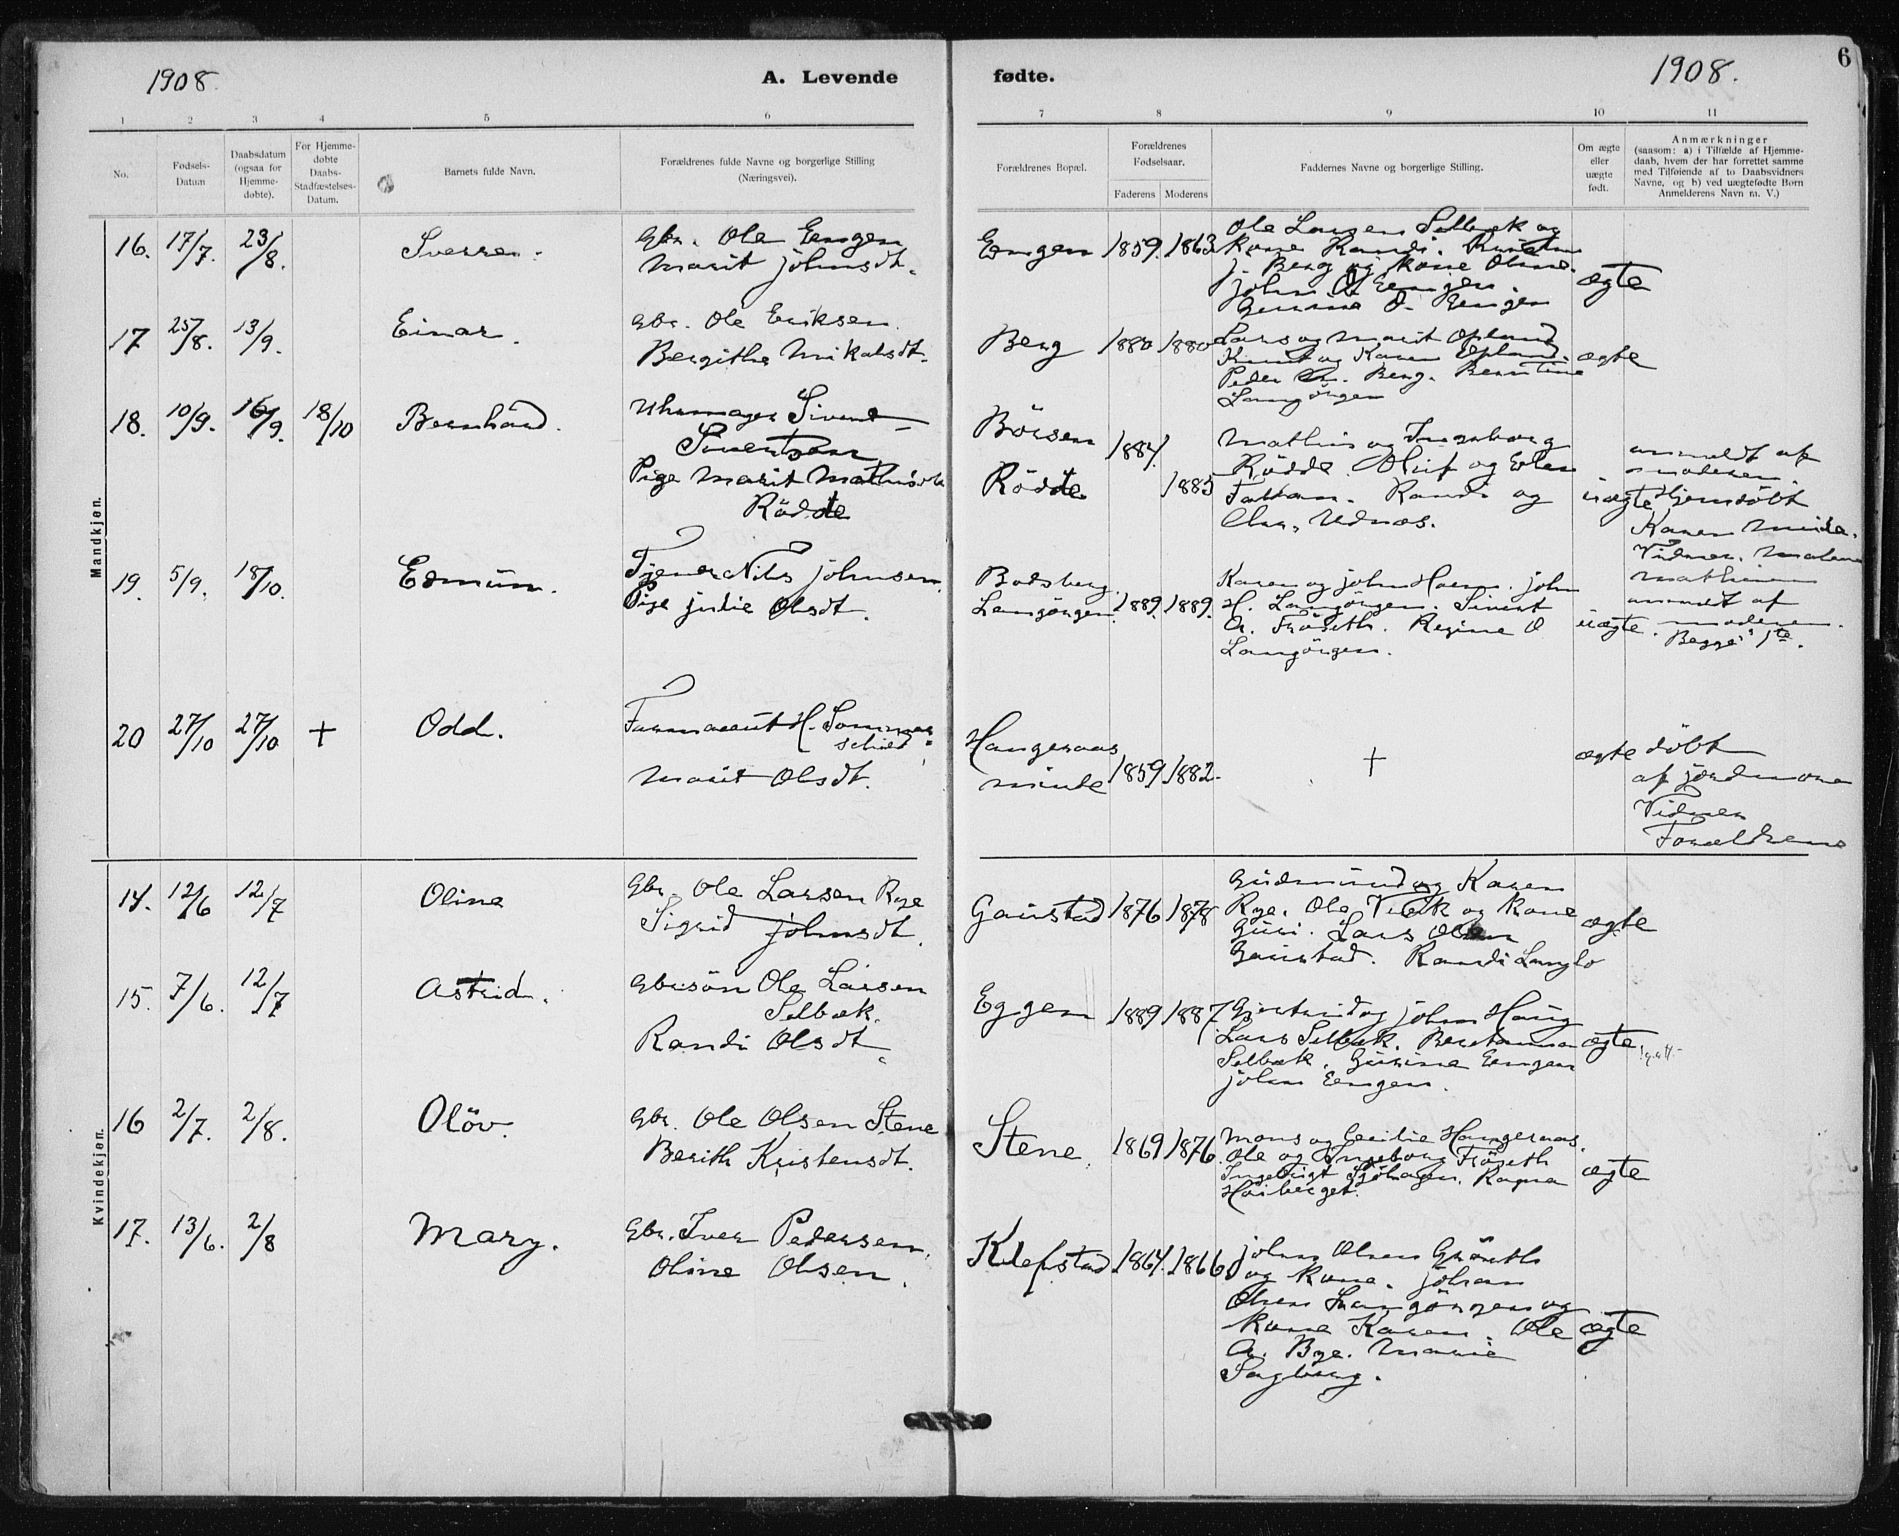 1908.
A. Levende
fødte.
1908.
6
1 2 3 4 5 6 7 8 9 10 11
No.
Fødsels-
Datum
Daabsdatum
(ogsaa for
Hjemme-
døbte).
For Hjemme-
døbte
Daabs-
Stadfæstelses-
Datum.
Barnets fulde Navn.
Forældrenes fulde Navne og borgerlige Stilling
(Næringsvei).
Forældrenes Bopæl.
Forældrenes
Fødselsaar.
Faderens
Moderens
Faddernes Navne og borgerlige Stilling.
Om ægte
eller
uægte
født.
Anmærkninger
(saasom: a) i Tilfælde af Hjemme-
daab, hvem der har forrettet samme
med Tilføiende af to Daabsvidners
Navne, og b) ved uægtefødte Børn
Anmelderens Navn m. V.)
Mandkjøn.
16. 17/7. 23/8. Sverre.
Gbr. Ole Eengen
Marit Johnsdt.
Eengen 1859. 1863
Ole Larsen Selbæk og
kone Randi.
J. Berg og kone Oline.
John O Eengen.
Gurine O. Eengen
ægte
17 25/8. 13/9. Einar.
Gbr. Ole Eriksen.
Bergithe Mikalsdt.
Berg 1880 1880
Lars og Marit Opland
Knut og Karen Opland.
Peder Berg. Berntine
Langörgen
ægte
18. 10/9. 16/9. 18/10 Bernhard.
Uhrmager Sivert
Sivertsen
Pige Marit Mathisdt
Rödde
Börsen 1884.
Rödde 1885
Mathis og Ingeborg
Rödde Oluf og Ellen
Randi og
Chr. Udnæs.
uægte
anmeldt af
moderen.
Hjemdöbt
Karen Minde.
Vidner. Malene
Mathisen
19. 5/9. 18/10. Edmun.
Tjener Nils Johnsen.
Pige Julie Olsdt.
Bodsberg
Langörgen 1889. 1889.
Karen og John Horn. John
H. Langörgen. Sivert
A. Fröseth. Regine O
Langörgen.
uægte.
anmeldt af
moderen.
Begges 1te.
20 27/10 27/10 + Odd.
Farmaceut H. Sommer
schield
Marit Olsdt.
Haugeraas
minde 1859. 1882.
+
ægte
döbt
af jordmoren
Vidner
Forældrene
Kvindekjøn.
14. 12/6 12/7 Oline
Gbr. Ole Larsen Rye
Sigrid Johnsdt.
Gaustad 1876 1878
Gudmund og Karen
Rye. Ole og kone
Guri. Lars Olsen
Gaustad. Randi Langlo
ægte
15. 7/6. 12/7 Astrid.
Gbrsön Ole Larsen
Selbæk.
Randi Olsdt.
Eggen 1889 1887
Gjertrud og John Haug
Lars Selbæk. Beretanna
Selbæk. Gurine Eengen
John Eengen.
ægte
16 2/7. 2/8. Olöv.
Gbr. Ole Olsen Stene
Berith Kristensdt.
Stene. 1869 1876
Mons og Cecilie Haugeraas.
Ole og Ingeborg Fröseth
Ingebrigt Sjöhagen. Ragna
Haiberget.
ægte
17. 13/6. 2/8 Mary.
Gbr. Iver Pedersen.
Oline Olsen.
Klefstad 1864. 1866
John Olsen Gröseth
og kone. Johan
Olsen Langörgen og
kone Karen. Ole
A. Bye. Marie
Sagberg.
ægte